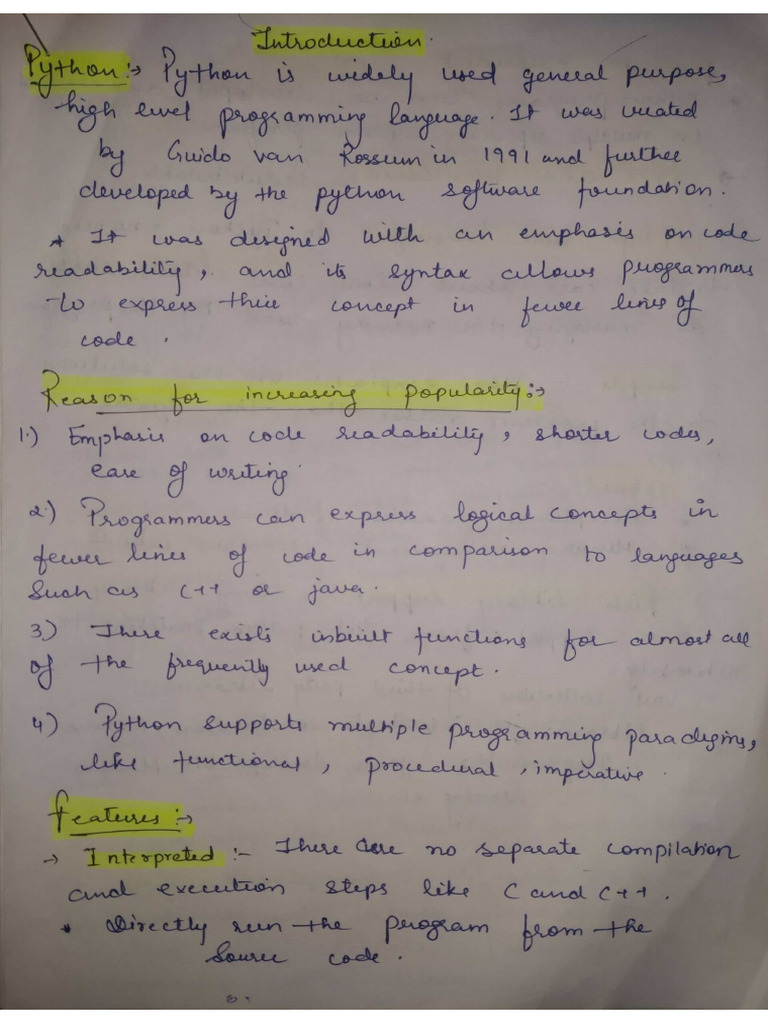 Introduction
Python :→ Python is widely used general purpose,
high level programming language. It was created
by Guido van Rossum in 1991 and further
developed by the python software foundation.
* It was designed with an emphasis on code
readability, and its syntax allows programmers
to express their concept in fewer lines of
code.
Reason for increasing popularity :→
1.) Emphasis on code readability, shorter codes,
ease of writing.
2.) Programmers can express logical concepts in
fewer lines of code in comparison to languages
Such as C++ or java.
3.) There exists inbuilt functions for almost all
of the frequently used concept.
4) Python supports multiple programming paradigms,
like functional, procedural, imperative.
Features :→
→ Interpreted :- There are no separate compilation
and execution steps like C and C++.
* Directly run the program from the
Source code.